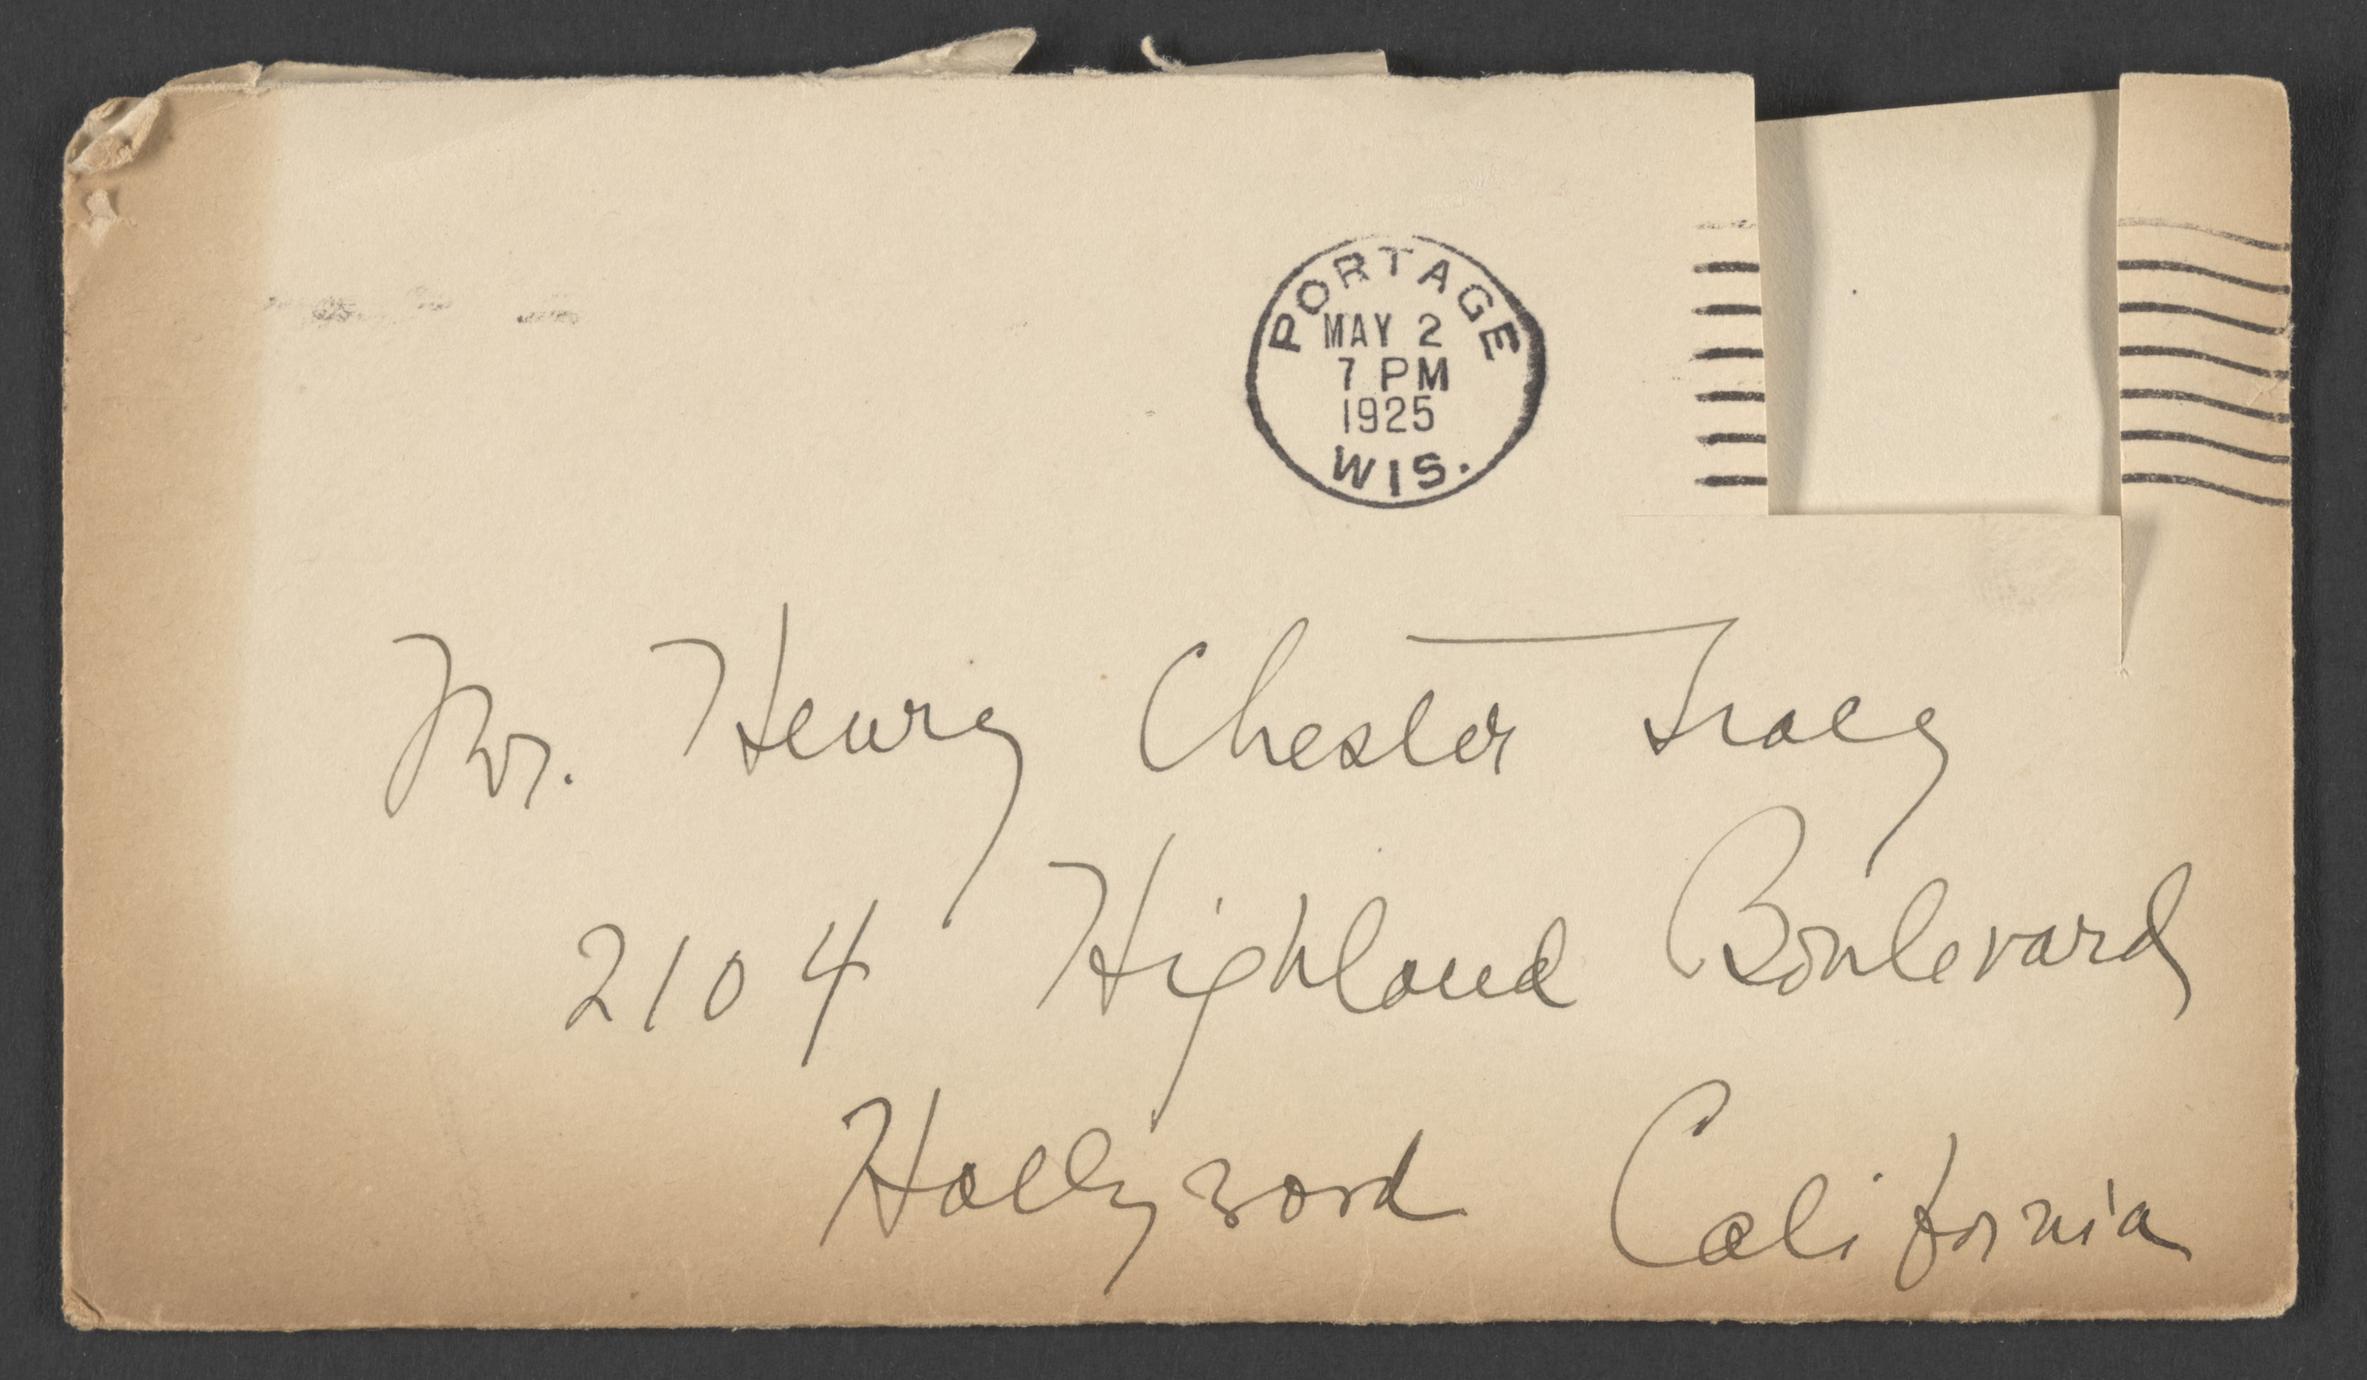 PORTAGE
MAY 2
7 PM
1925
WIS.
Mr. Henry Chester Tracy
2104 Highland Boulevard
Hollywood California